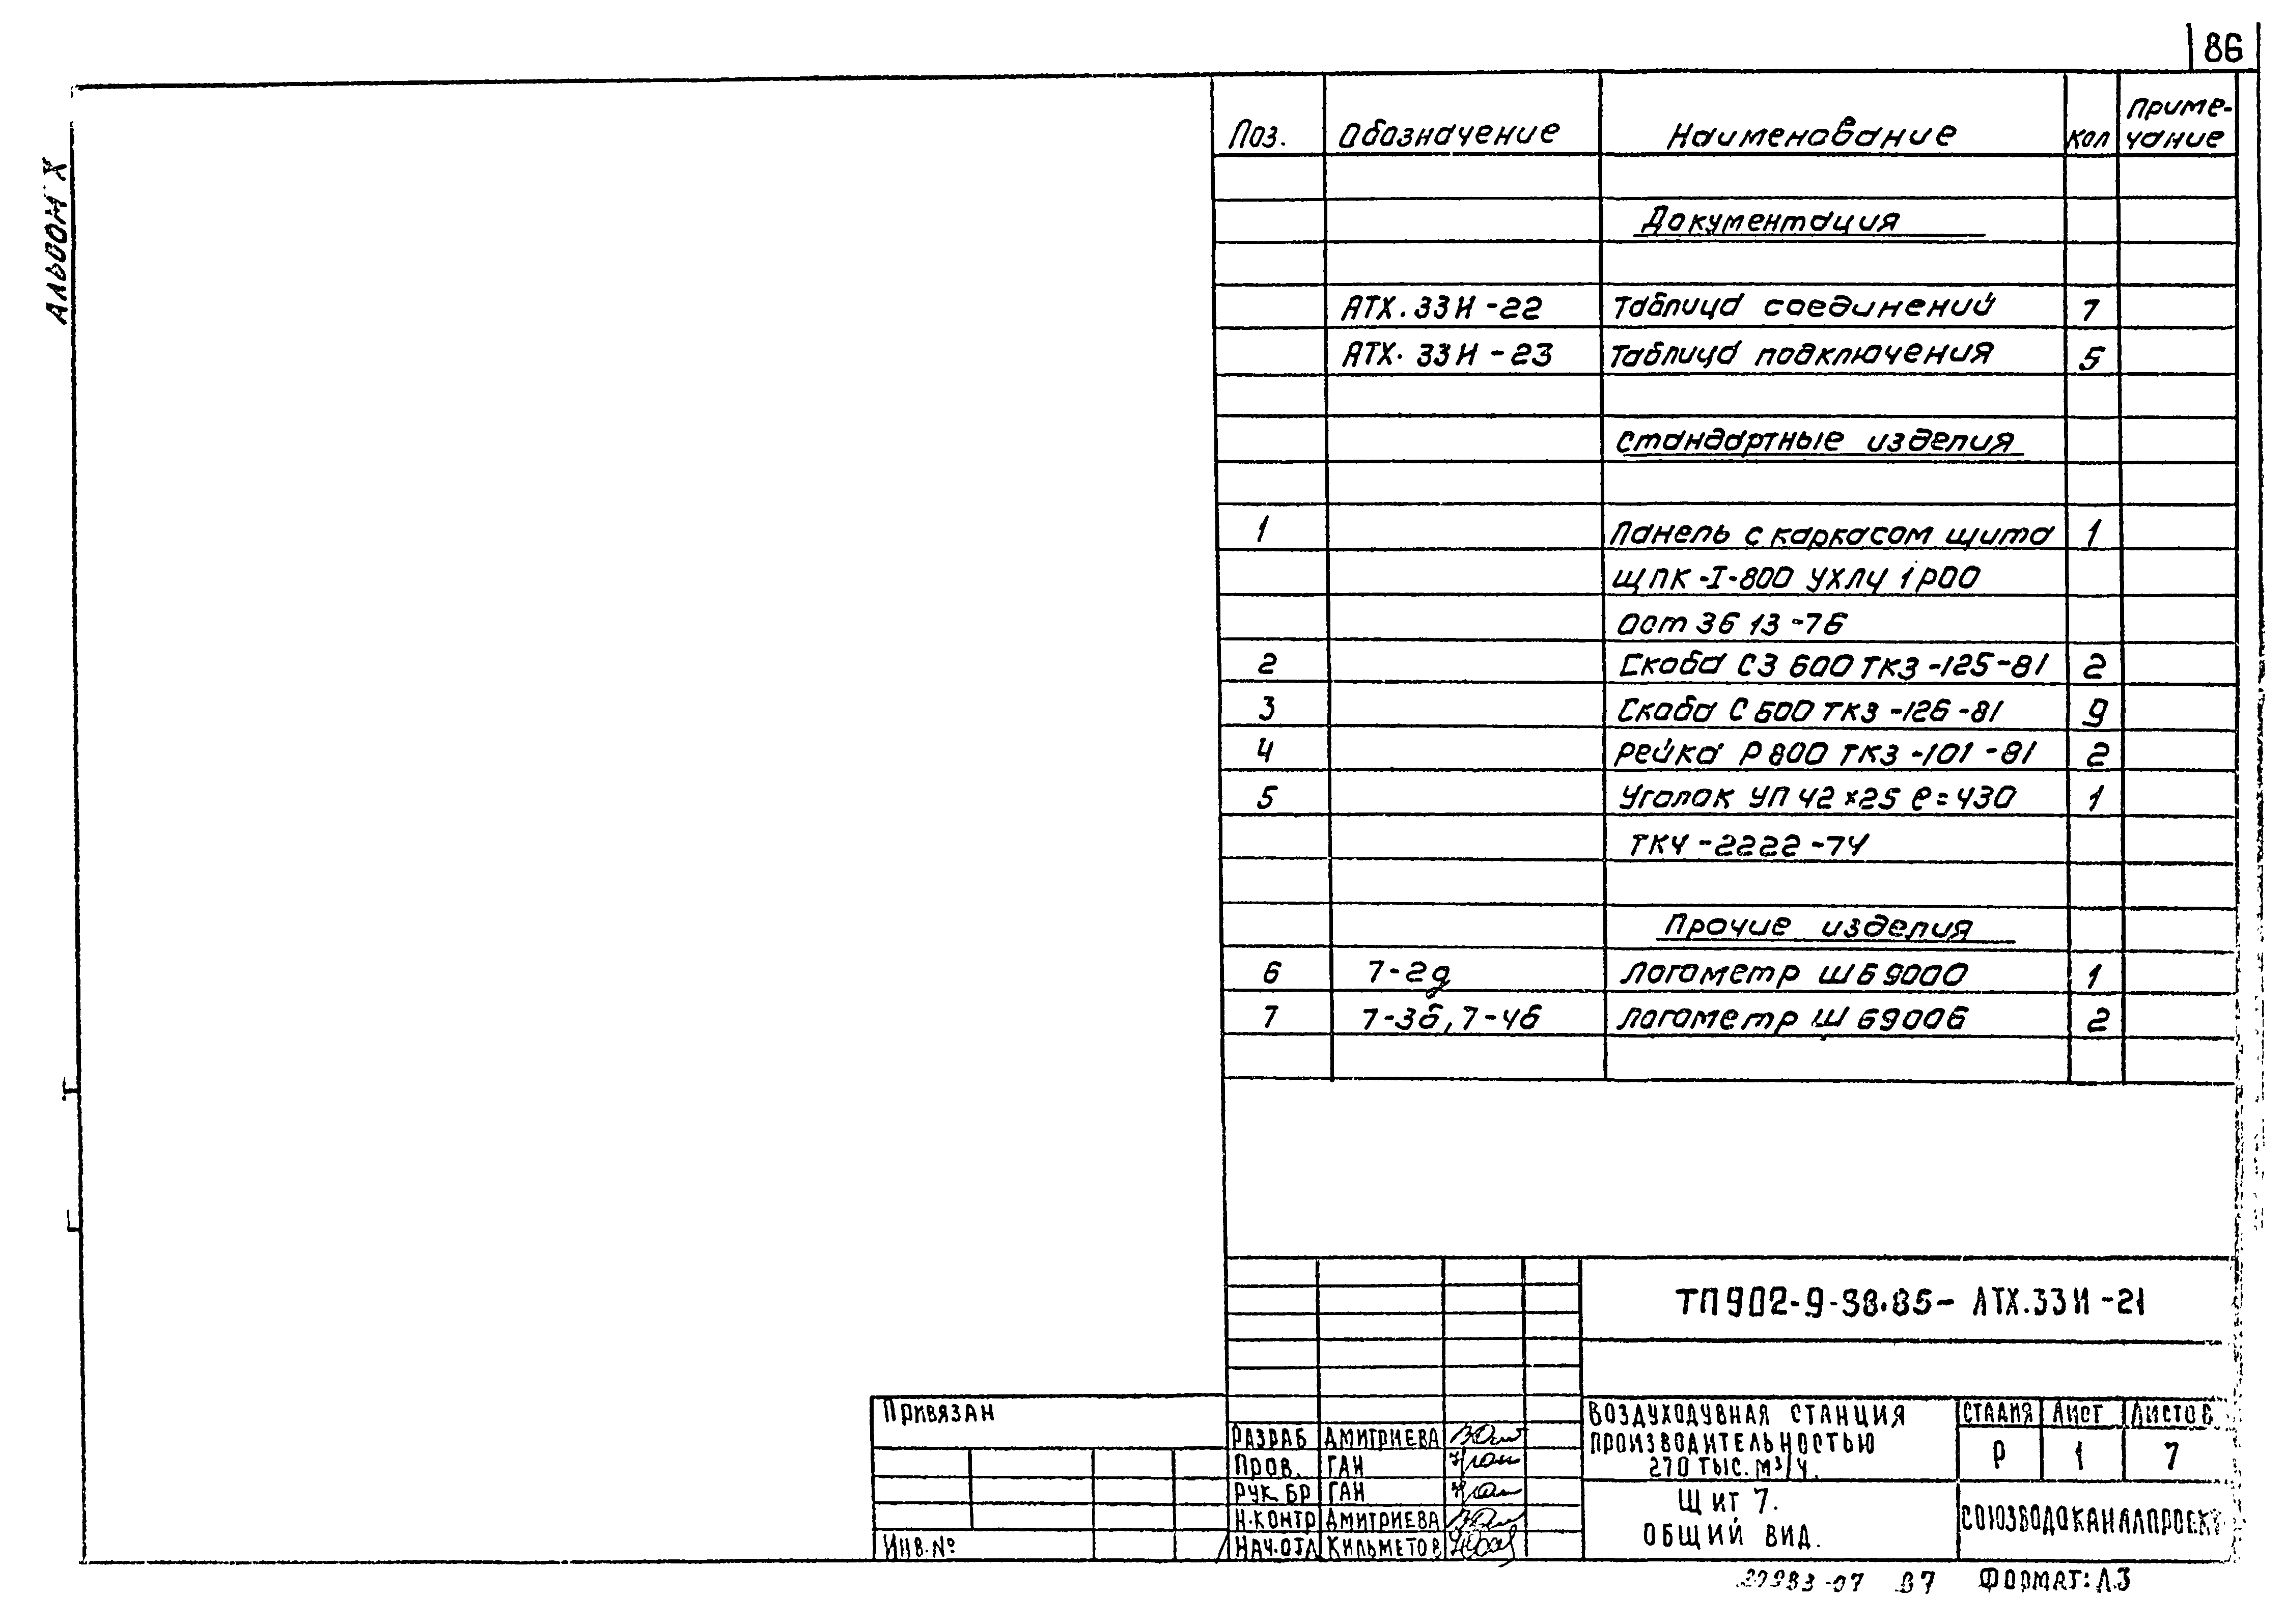 86
АЛЬБОМ X
Поз. Обозначение Наименование Кол Приме-
чание
Документация
АТХ.33И-22 Таблица соединений 7
АТХ.33И-23 Таблица подключения 5
Стандартные изделия
1 Панель с каркасом щита 1
ЩПК-I-800 УХЛ4 1Р00
Ост 36 13-76
2 Скоба С3 600 ТК3-125-81 2
3 Скоба С 600 ТК3-126-81 9
4 Рейка Р800 ТК3-101-81 2
5 Уголок УП 42×25 ℓ=430 1
ТК4-2222-74
Прочие изделия
6 7-2д Логометр Ш69000 1
7 7-3б, 7-4б Логометр Ш69006 2
ТП902-9-38.85- АТХ.33И-21
Привязан
Инв.№
РАЗРАБ ДМИТРИЕВА
ПРОВ. ГАН
РУК.БР ГАН
Н.КОНТР ДМИТРИЕВА
НАЧ.ОТД КИЛЬМЕТОВ
ВОЗДУХОДУВНАЯ СТАНЦИЯ
ПРОИЗВОДИТЕЛЬНОСТЬЮ
270 ТЫС. М³/Ч.
СТАДИЯ ЛИСТ ЛИСТОВ
Р 1 7
ЩИТ 7.
ОБЩИЙ ВИД.
СОЮЗВОДОКАНАЛПРОЕКТ
20983-07 87 ФОРМАТ: А3